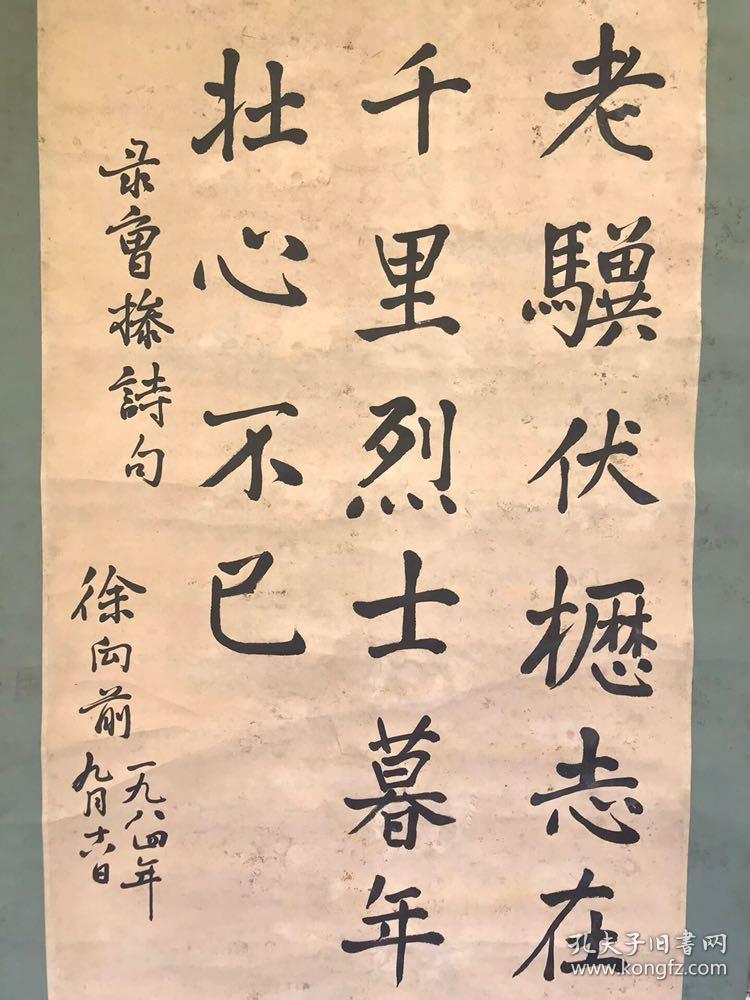 老驥伏櫪志在
千里烈士暮年
壮心不已
录曹操詩句
徐向前
一九八四年
九月十六日
孔夫子旧書网
www.kongfz.com